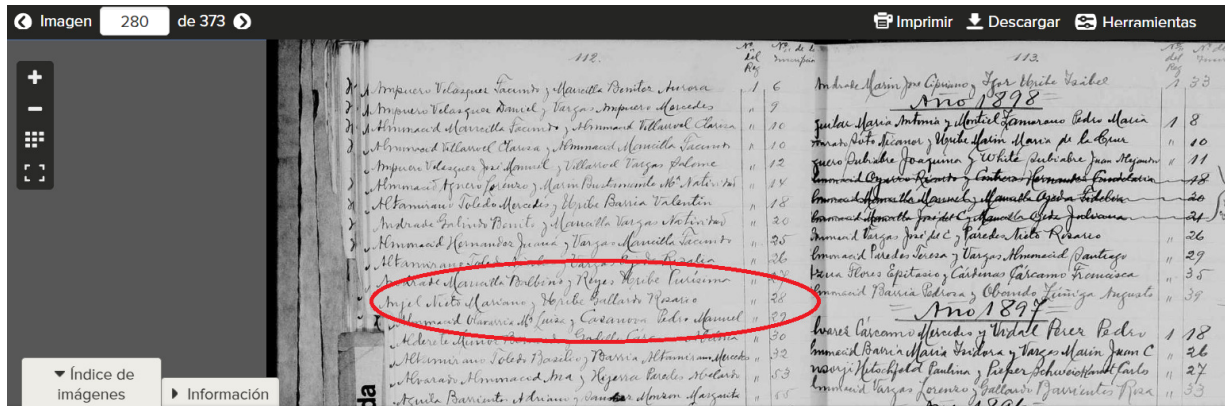 Imagen 280 de 373
Imprimir Descargar Herramientas
112.
Nº del Reg
Nº de la
Ampuero Velasquez Jacinto y Mancilla Benitez Aurora 1 6
Ampuero Velasquez Daniel y Vargas Ampuero Mercedes " 9
Almonacid Mancilla Jacinto y Almonacid Villarroel Clarisa " 10
Almonacid Villarroel Clarisa y Almonacid Mancilla Jacinto " 10
Ampuero Velasquez José Manuel y Villarroel Vargas Salome " 12
Almonacid Agüero Lorenzo y Marin Bustamante Mª Natividad " 14
Altamirano Toledo Mercedes y Uribe Barria Valentin " 18
Andrade Galindo Benito y Mancilla Vargas Natividad " 20
Almonacid Hernandez Juana y Vargas Mancilla Jacinto " 25
Altamirano Toledo y Vargas Rosalia " 26
Andrade Mancilla Balbino y Reyes Uribe Purísima
Anjel Nieto Mariano y Uribe Gallardo Rosario " 28
Almonacid Olavarria Mª Luisa y Casanova Pedro Manuel " 29
Alderete Muñoz " 30
Altamirano Toledo Basilio y Barria Altamirano Mercedes " 32
Alvarado Almonacid Ana y Paredes Abelardo " 53
Aguila Barrientos Adriano y Sanchez Monzon Margarita " 55
113.
Nº del Reg
Nº de
Andrade Marin José Cipriano y Igor Uribe Isabel 1 33
Año 1898
Maria Antonia y Montiel Zamorano Pedro Maria 1 8
Soto Nicanor y Uribe Marin Maria de la Cruz " 10
Subiabre Joaquina y White Subiabre Juan Alejandro " 11
Hernandez Candelaria 18
Manuel y Mancilla Ojeda Fidelia 20
José del C y Mancilla Ojeda 21
Vargas José del C y Paredes Nieto Rosario " 26
Paredes Teresa y Vargas Almonacid Santiago " 29
Flores Epitasio y Cárdenas Cárcamo Francisca " 35
Barria Pedrosa y Obando Zúñiga Augusto " 39
Año 1897
Cárcamo Mercedes y Vidal Perez Pedro 1 18
Barria Maria Isidora y Vargas Marin Juan C " 26
Paulina y Carlos " 27
Vargas Lorenzo y Gallardo Barrientos Rosa " 33
Índice de imágenes
Información